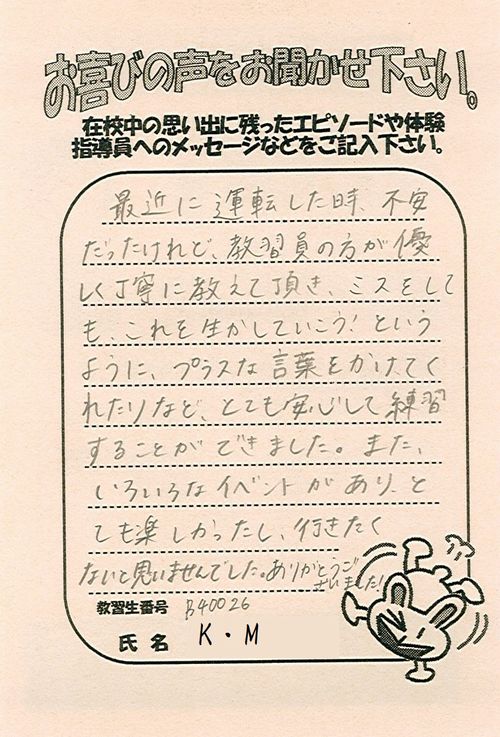 お喜びの声をお聞かせ下さい。
在校中の思い出に残ったエピソードや体験
指導員へのメッセージなどをご記入下さい。
最近に運転した時、不安
だったけれど、教習員の方が優
しく丁寧に教えて頂き、ミスをして
も、これを生かしていこう！という
ように、プラスな言葉をかけてく
れたりなど、とても安心して練習
することができました。また、
いろいろなイベントがあり、と
ても楽しかったし、行きたく
ないと思いませんでした。ありがとうご
ざいました！
教習生番号 B40026
氏名 K・M